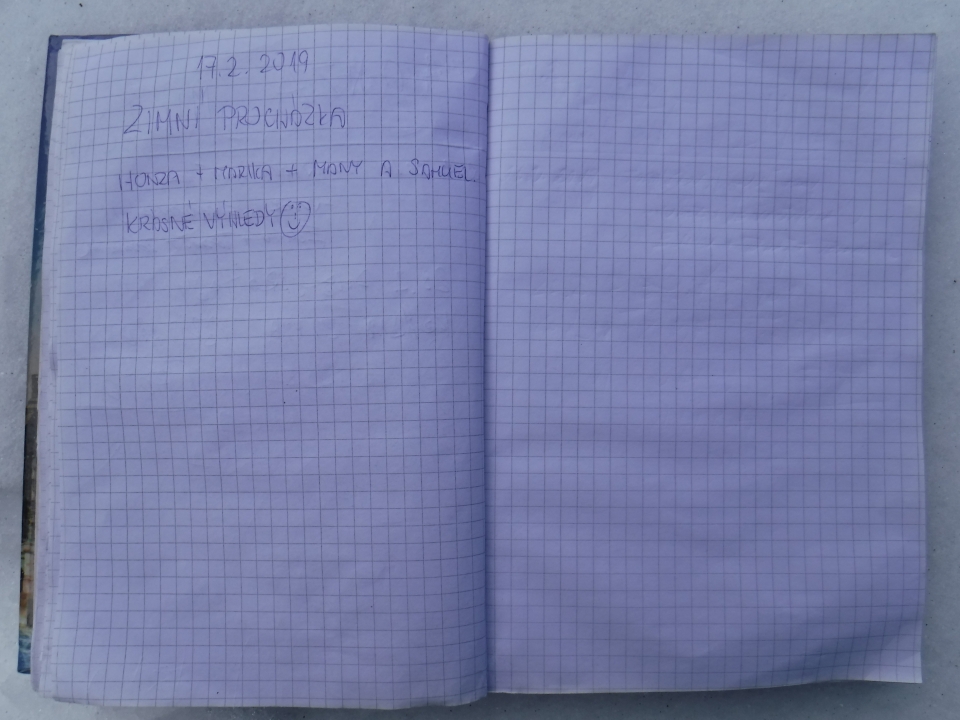 17.2. 2019
ZIMNÍ PROCHÁZKA
HONZA + MARIKA + MANY A SAMUEL.
KRÁSNÉ VÝHLEDY ☺